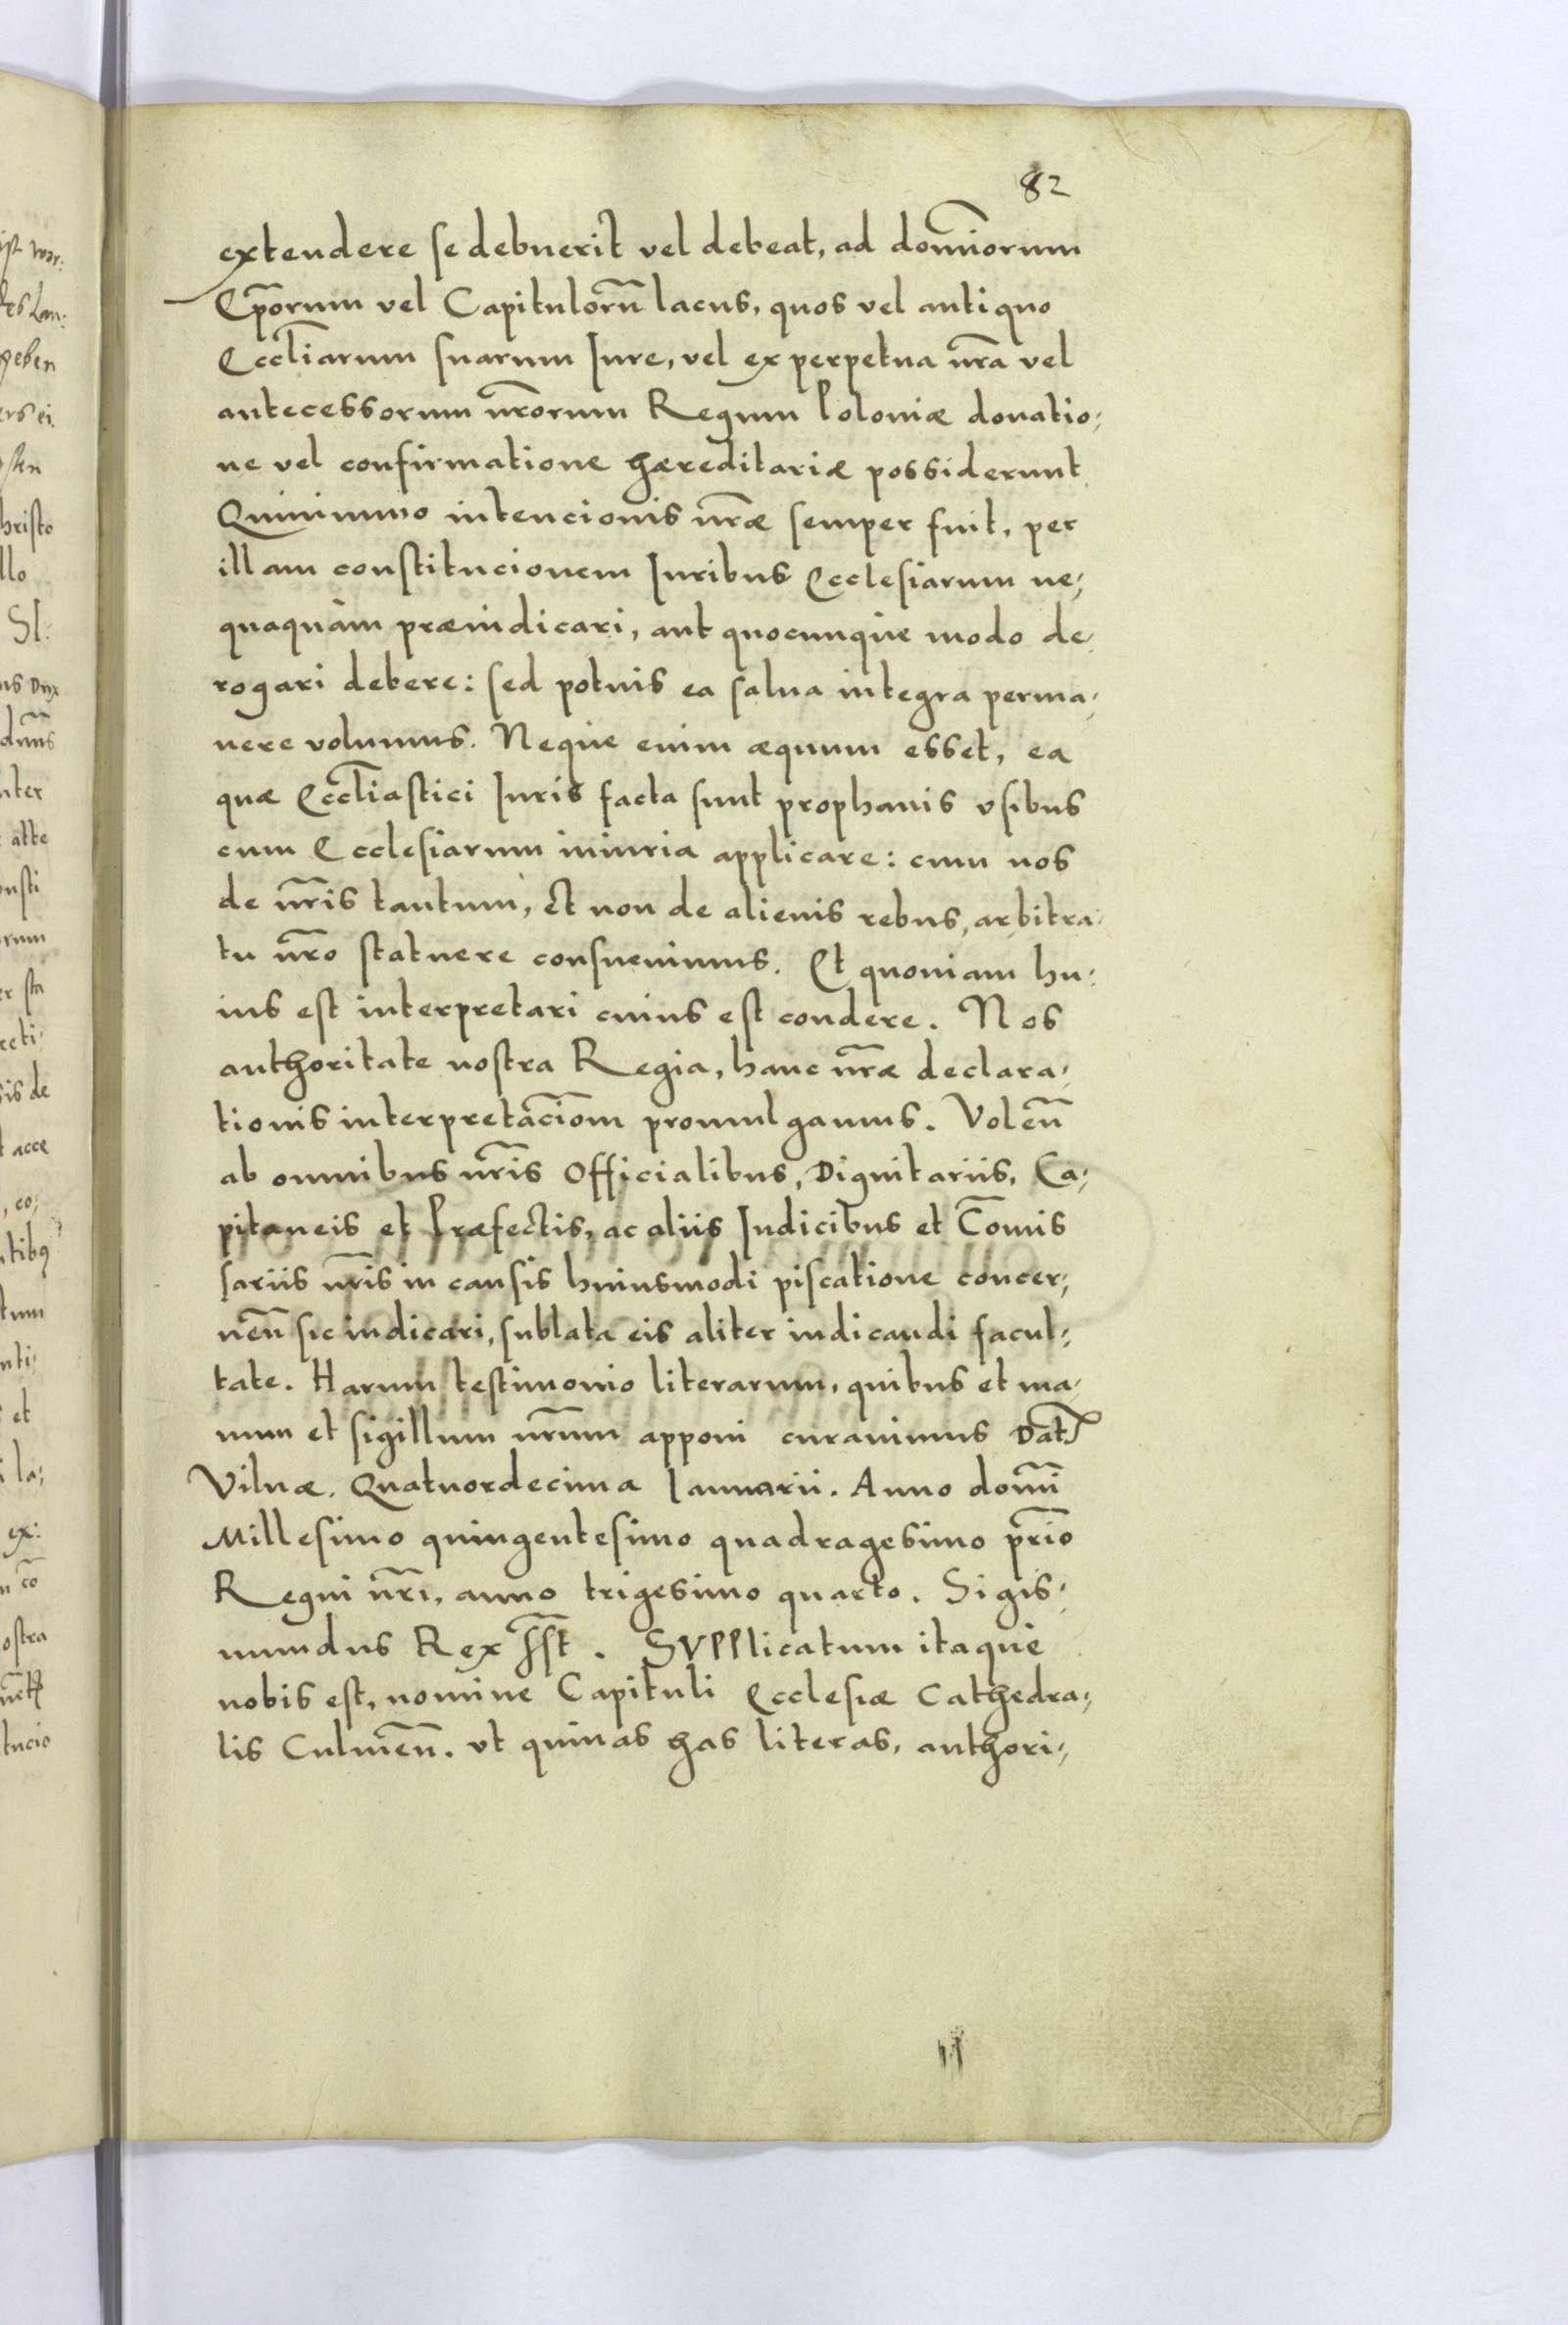 82
extendere se debuerit vel debeat, ad domīorum
Ep̄orum vel Capitulorū lacus, quos vel antiquo
Eccl̄iarum suarum Iure, vel ex perpetua nr̄a vel
antecessorum nr̄orum Regum Poloniæ donatio,
ne vel confirmatione hæreditariæ possiderunt.
Quinimmo intencionis nr̄æ semper fuit, per
illam constitucionem Iuribus Ecclesiarum ne,
quaquàm præiudicari, aut quocunque modo de,
rogari debere: sed potuis ea salua integra perma,
nere volumus. Neque enim æquum esset, ea
quæ Eccl̄iastici Iuris facta sunt prophanis vsibus
cum Ecclesiarum iniuria applicare: cum nos
de nr̄is tantum, et non de alienis rebus, arbitra,
tu nr̄o statuere consueuimus. Et quoniam hu,
ius est interpretari cuius est condere. Nos
authoritate nostra Regia, hanc nr̄æ declara,
tionis interpretac̄iom promulgamus. Volen̄
ab omnibus nr̄is Officialibus, Dignitariis, Ca,
pitaneis et Præfectis, ac aliis Iudicibus et Com̄is
sariis nr̄is in causis huiusmodi piscatione concer,
nen̄ sic iudicari, sublata eis aliter iudicandi facul,
tate. Harum testimonio literarum, quibus et ma,
num et sigillum nr̄um apponi curauimus Dat̄
Vilnæ. Quatuordecima Ianuarii. Anno domī
Millesimo quingentesimo quadragesimo pr̄io
Regni nr̄i, anno trigesimo quarto. Sigis,
mundus Rex sst̄. SVPPlicatum itaque
nobis est, nomine Capituli Ecclesiæ Cathedra,
lis Culmen̄. vt quinas has literas, authori,